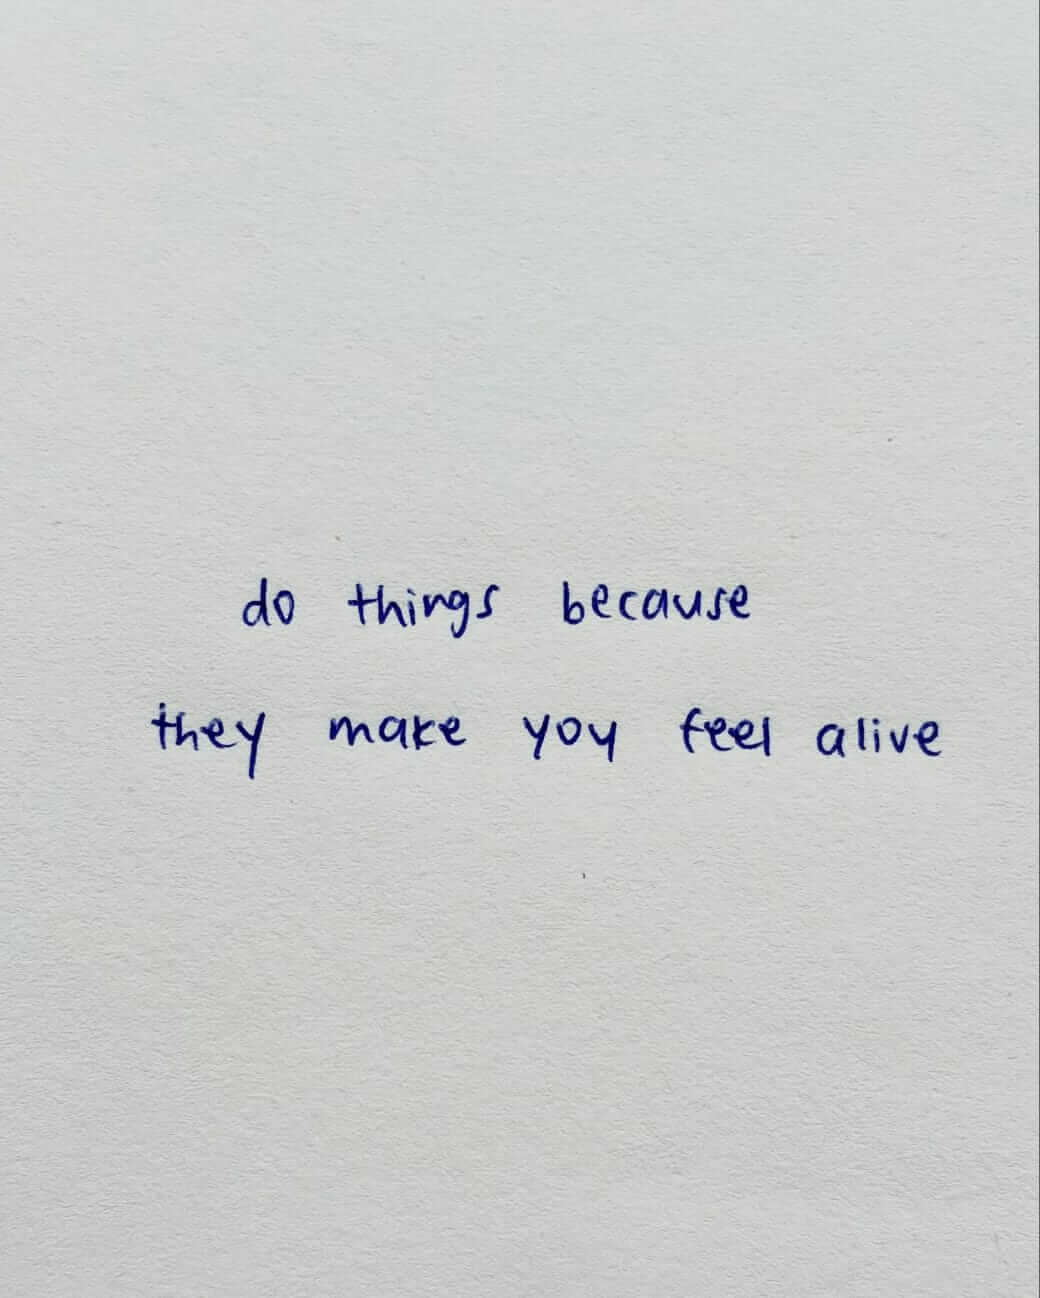 do things because
they make you feel alive